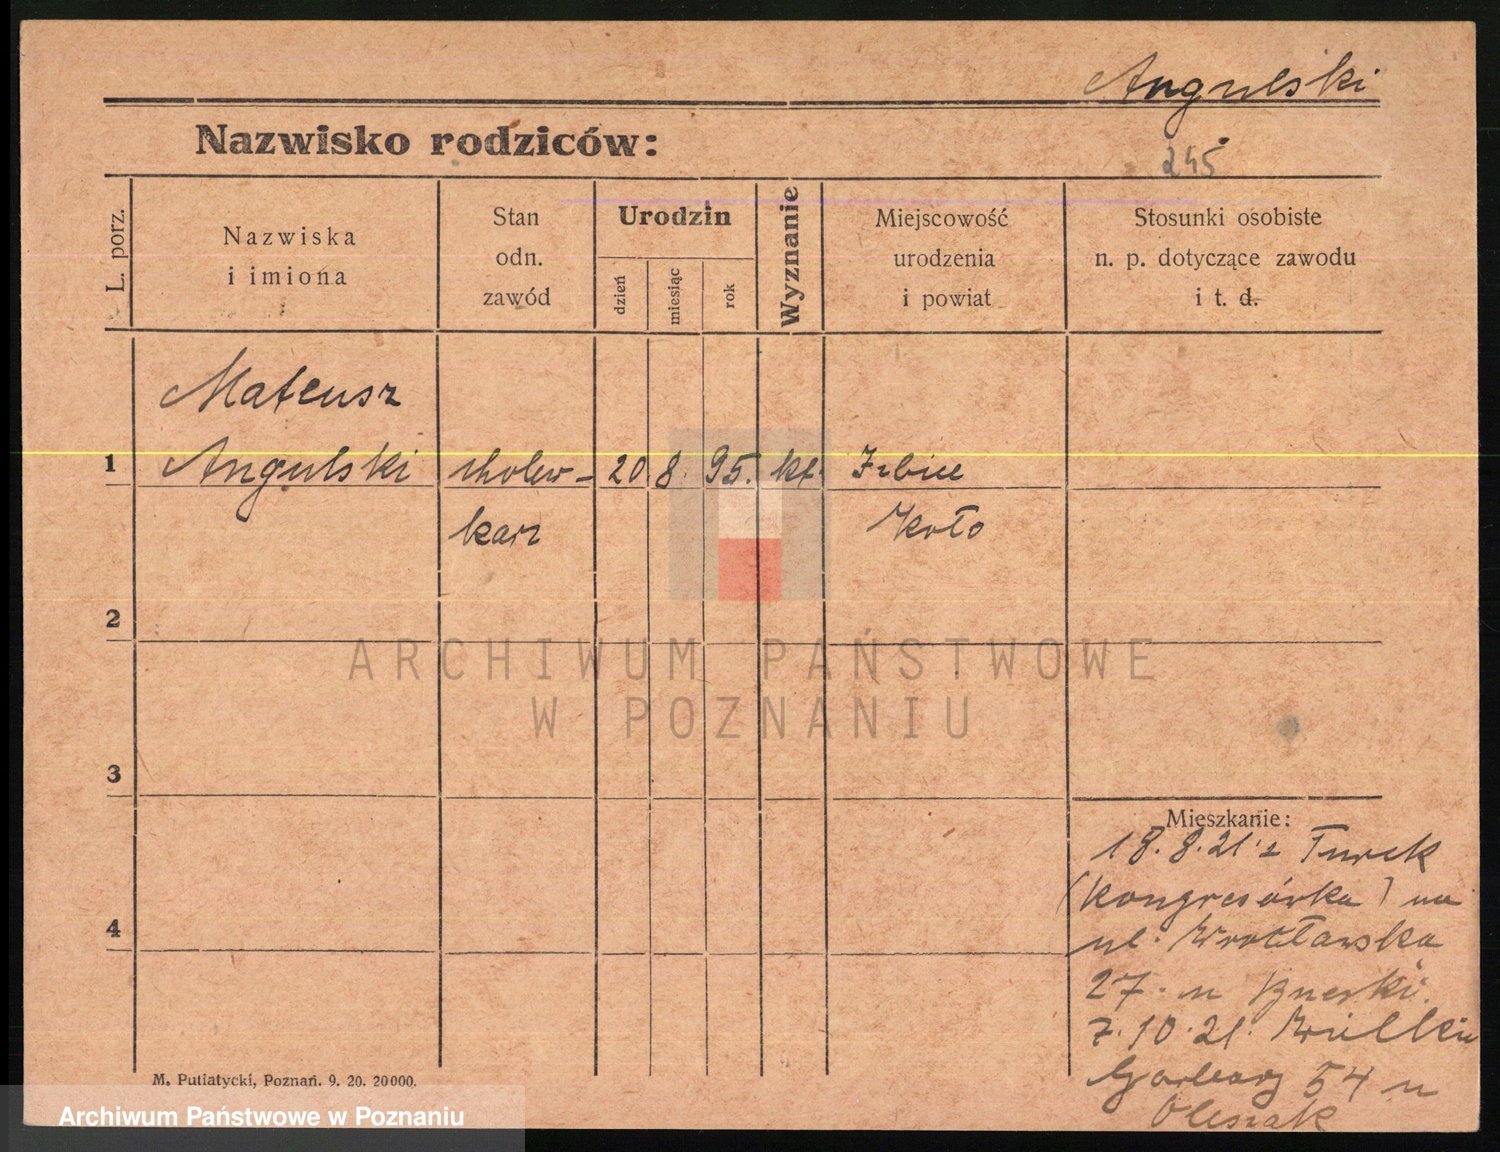 Angulski
Nazwisko rodziców:
245
L. porz.
Nazwiska
i imiona
Stan
odn.
zawód
Urodzin
dzień
miesiąc
rok
Wyznanie
Miejscowość
urodzenia
i powiat
Stosunki osobiste
n. p. dotyczące zawodu
i t. d.
Mateusz
1 Angulski cholew- 20 8. 95. kt. Izbice
karz Koło
2
ARCHIWUM PAŃSTWOWE
W POZNANIU
3
Mieszkanie:
18.8.21 z Turek
(Kongresówka) na
4
ul. Wrocławska
27. u
7.10.21. Wielkie
Garbary 54 u
Oleszak
M. Putiatycki, Poznań. 9. 20. 20000.
Archiwum Państwowe w Poznaniu